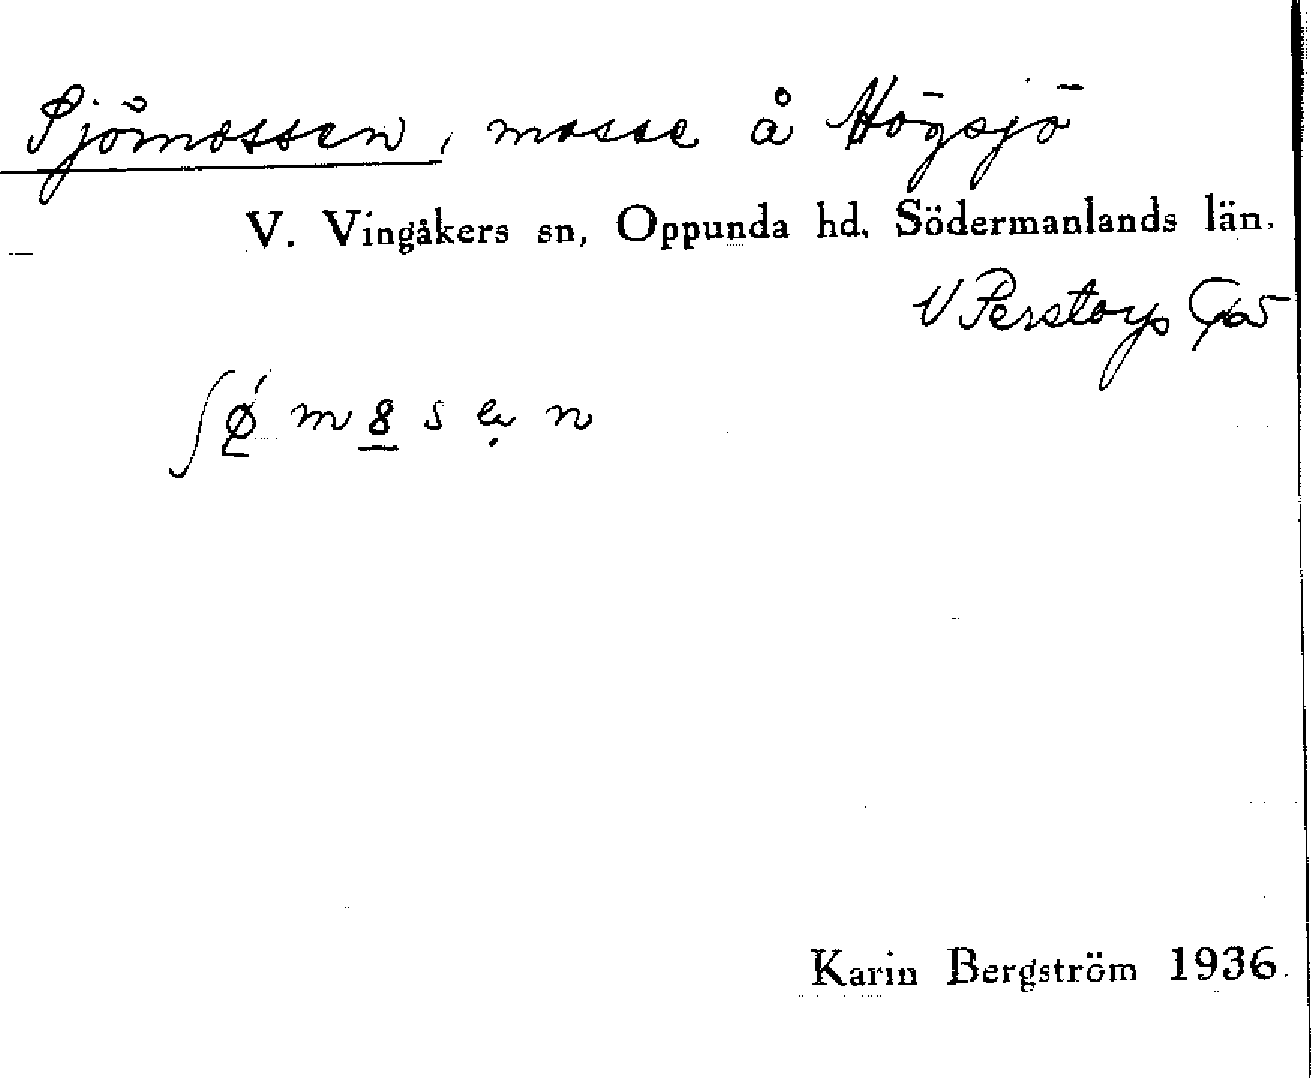 Sjömossen, mosse å Högsjö
V. Vingåkers sn, Oppunda hd. Södermanlands län.
V Perstorp
Karin Bergström 1936.